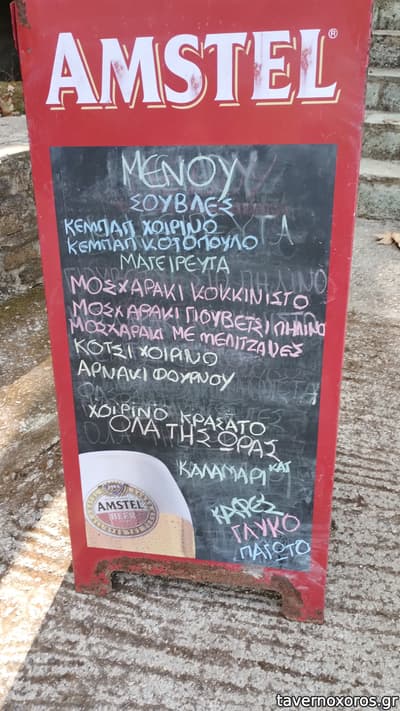 AMSTEL®
ΜΕΝΟΥ
ΣΟΥΒΛΕΣ
ΚΕΜΠΑΠ ΧΟΙΡΙΝΟ
ΚΕΜΠΑΠ ΚΟΤΟΠΟΥΛΟ
ΜΑΓΕΙΡΕΥΤΑ
ΜΟΣΧΑΡΑΚΙ ΚΟΚΚΙΝΙΣΤΟ
ΜΟΣΧΑΡΑΚΙ ΓΙΟΥΒΕΤΣΙ ΠΗΛΙΝΟ
ΜΟΣΧΑΡΑΚΙ ΜΕ ΜΕΛΙΤΖΑΝΕΣ
ΚΟΤΣΙ ΧΟΙΡΙΝΟ
ΑΡΝΑΚΙ ΦΟΥΡΝΟΥ
ΧΟΙΡΙΝΟ ΚΡΑΣΑΤΟ
ΟΛΑ ΤΗΣ ΩΡΑΣ
ΚΑΛΑΜΑΡΙ ΚΑΙ
ΚΑΦΕΣ
ΓΛΥΚΟ
ΠΑΓΩΤΟ
AMSTEL
BEER
tavernoxoros.gr